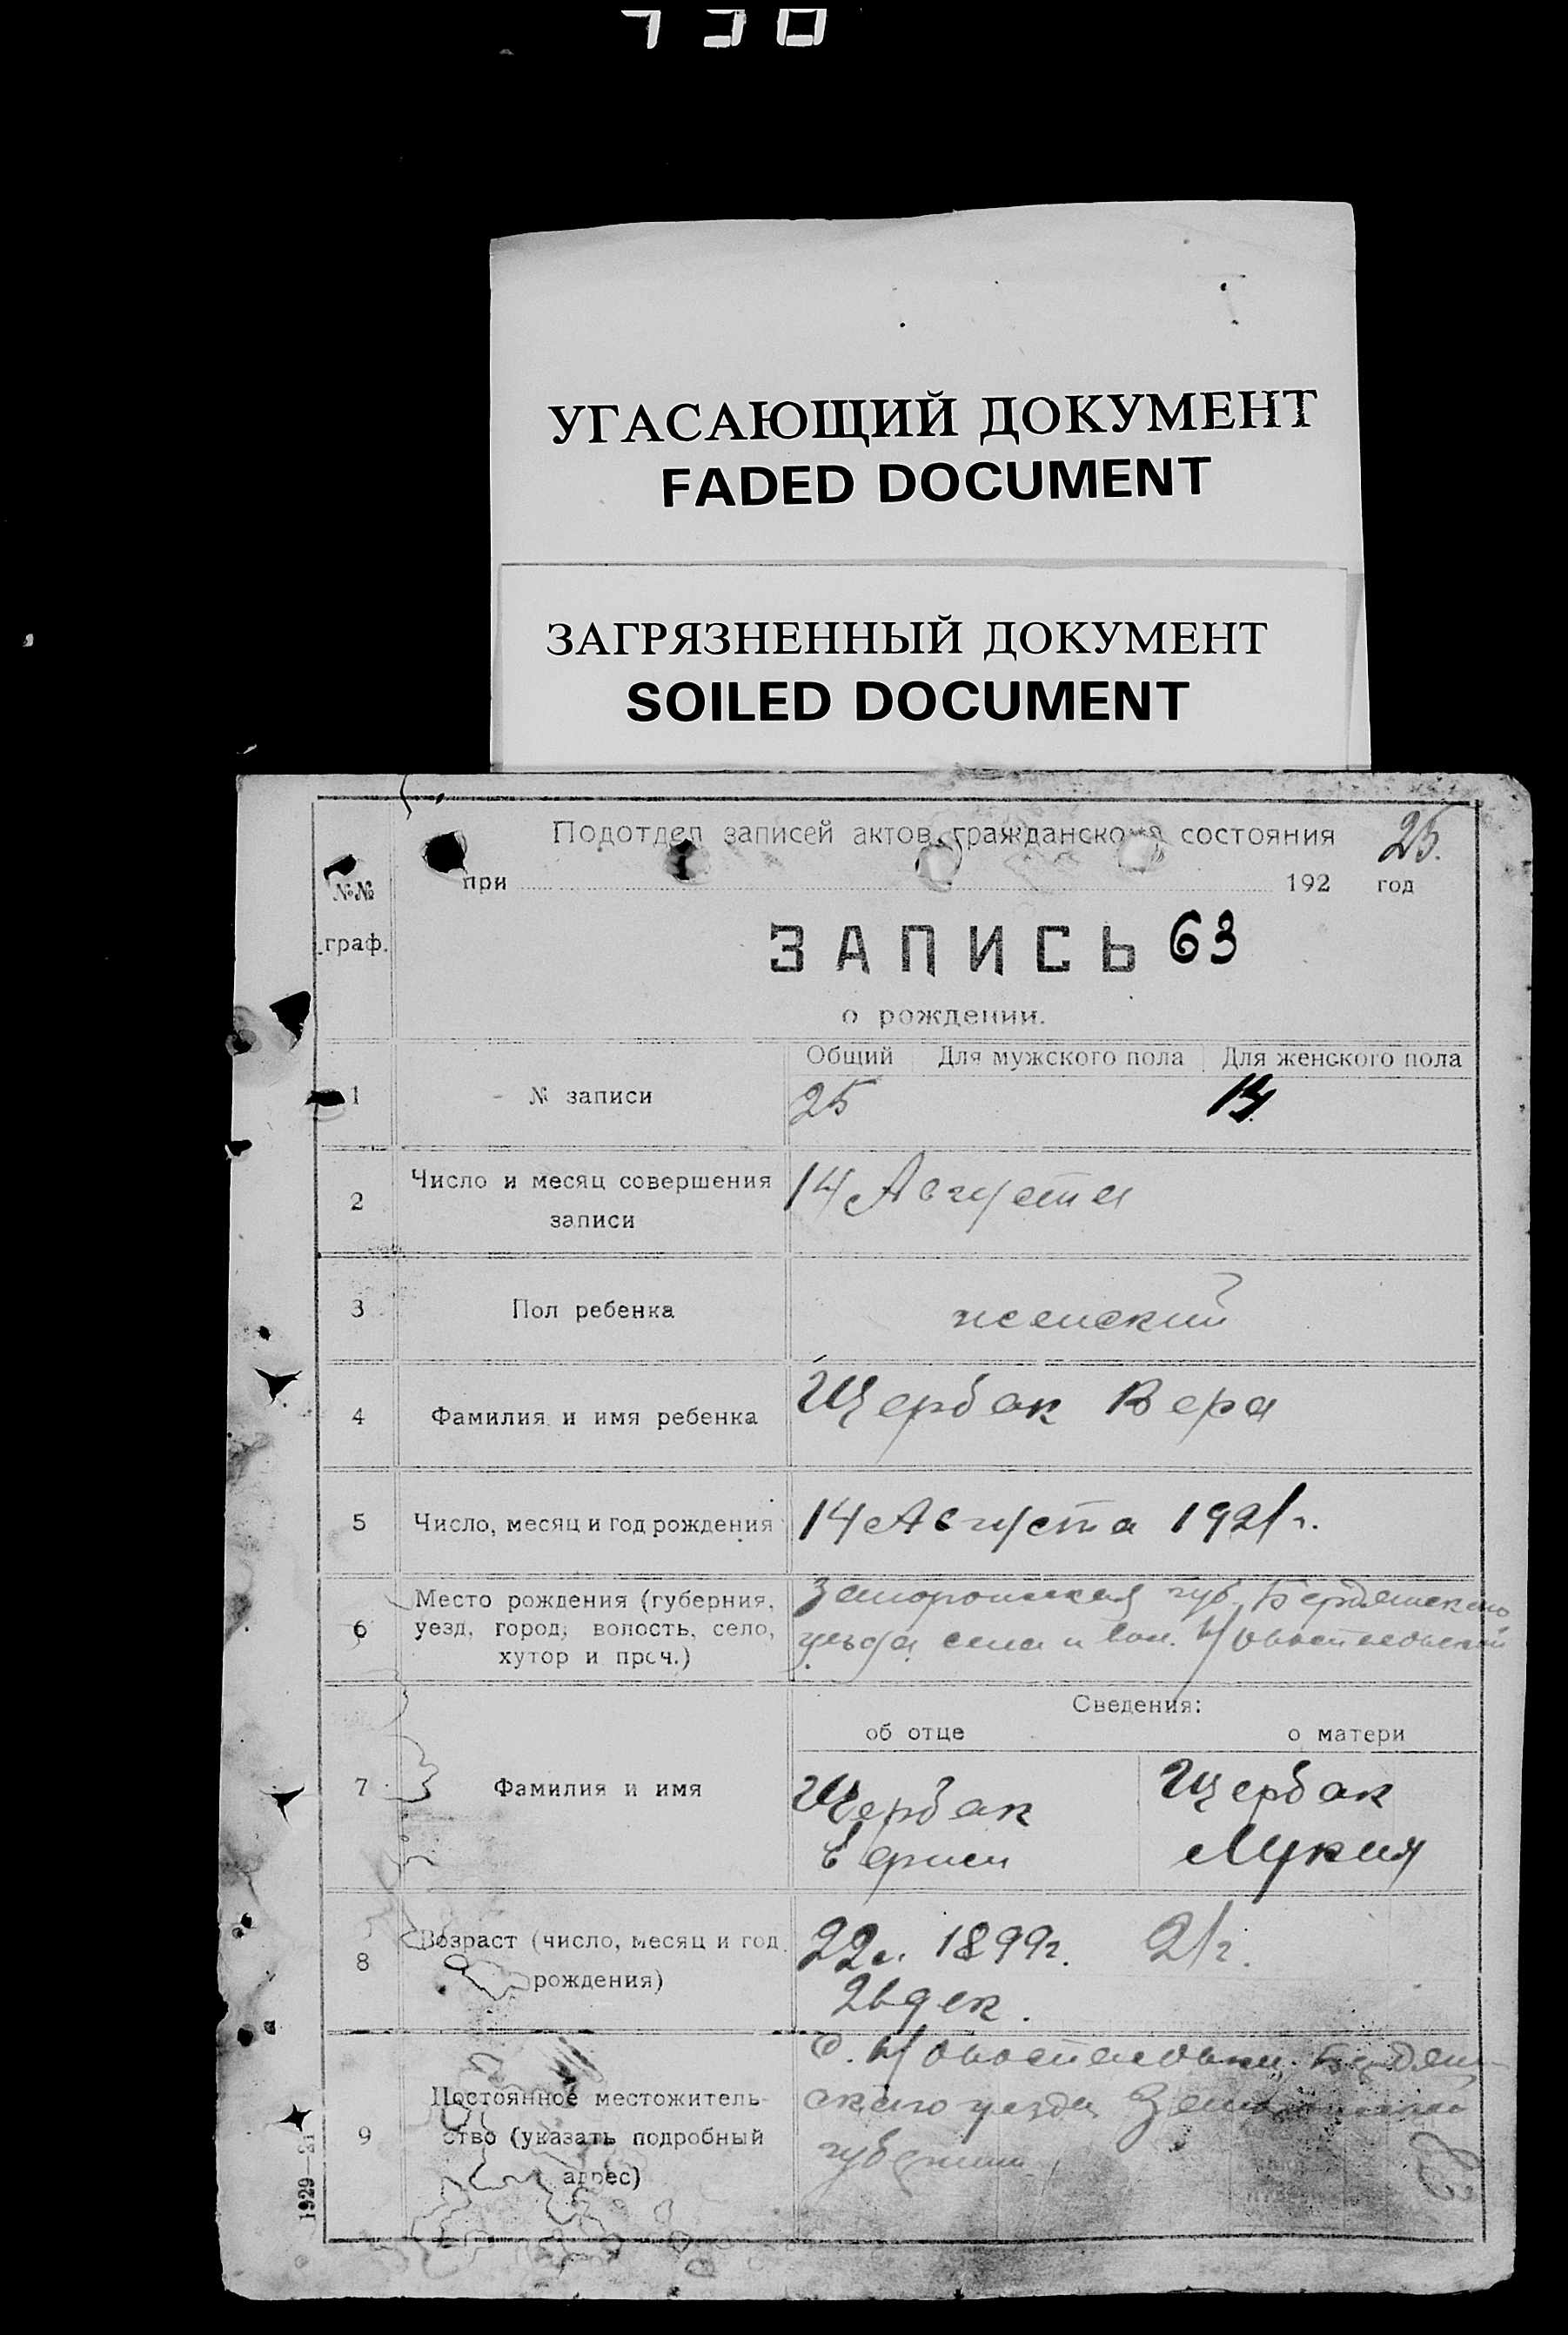 730
УГАСАЮЩИЙ ДОКУМЕНТ
FADED DOCUMENT
ЗАГРЯЗНЕННЫЙ ДОКУМЕНТ
SOILED DOCUMENT
Подотдел записей актов гражданского состояния 25.
при 192 год
№№
граф.
ЗАПИСЬ 63
о рождении.
Общий Для мужского пола Для женского пола
1 № записи 25
2 Число и месяц совершения
записи
14 Августа
3 Пол ребенка женский
4 Фамилия и имя ребенка Щербак Вера
5 Число, месяц и год рождения 14 Августа 1921 г.
6 Место рождения (губерния,
уезд, город, волость, село,
хутор и проч.)
губ. Бердянского
уезда села и вол.
Сведения:
об отце о матери
7 Фамилия и имя
Щербак Щербак
Лукия
8 Возраст (число, месяц и год
рождения)
22 1899г. 21г.
дек.
9 Постоянное местожитель-
ство (указать подробный
адрес)
с.
ского уезда
губернии
1929—21